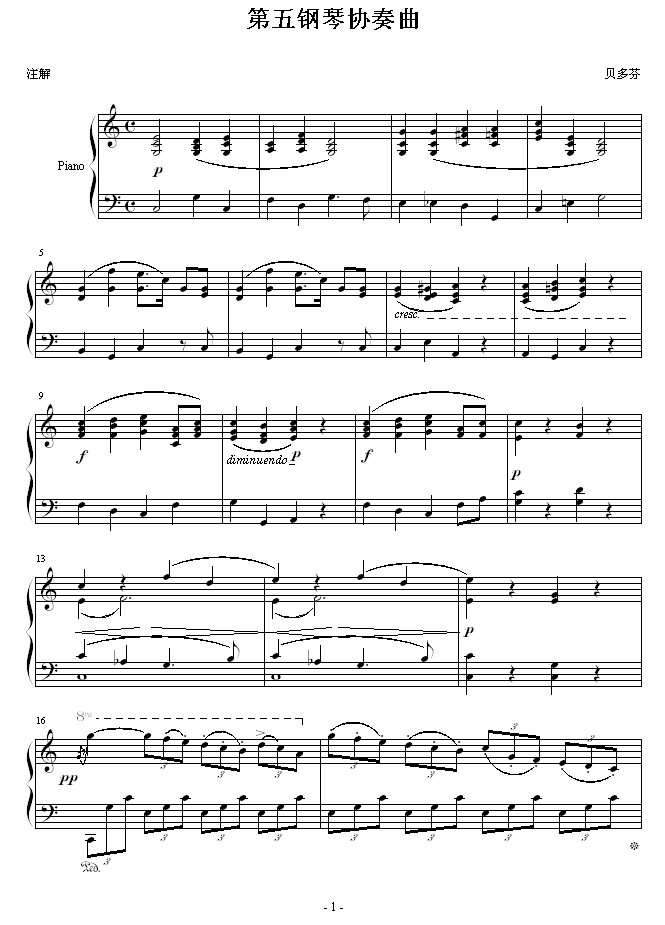 第五钢琴协奏曲
注解
贝多芬
Piano
p
5
cresc.
9
f
diminuendo
p
f
p
13
p
16
8va
pp
3
3
3
3
3
3
3
3
3
3
3
3
3
3
Ped.
- 1 -